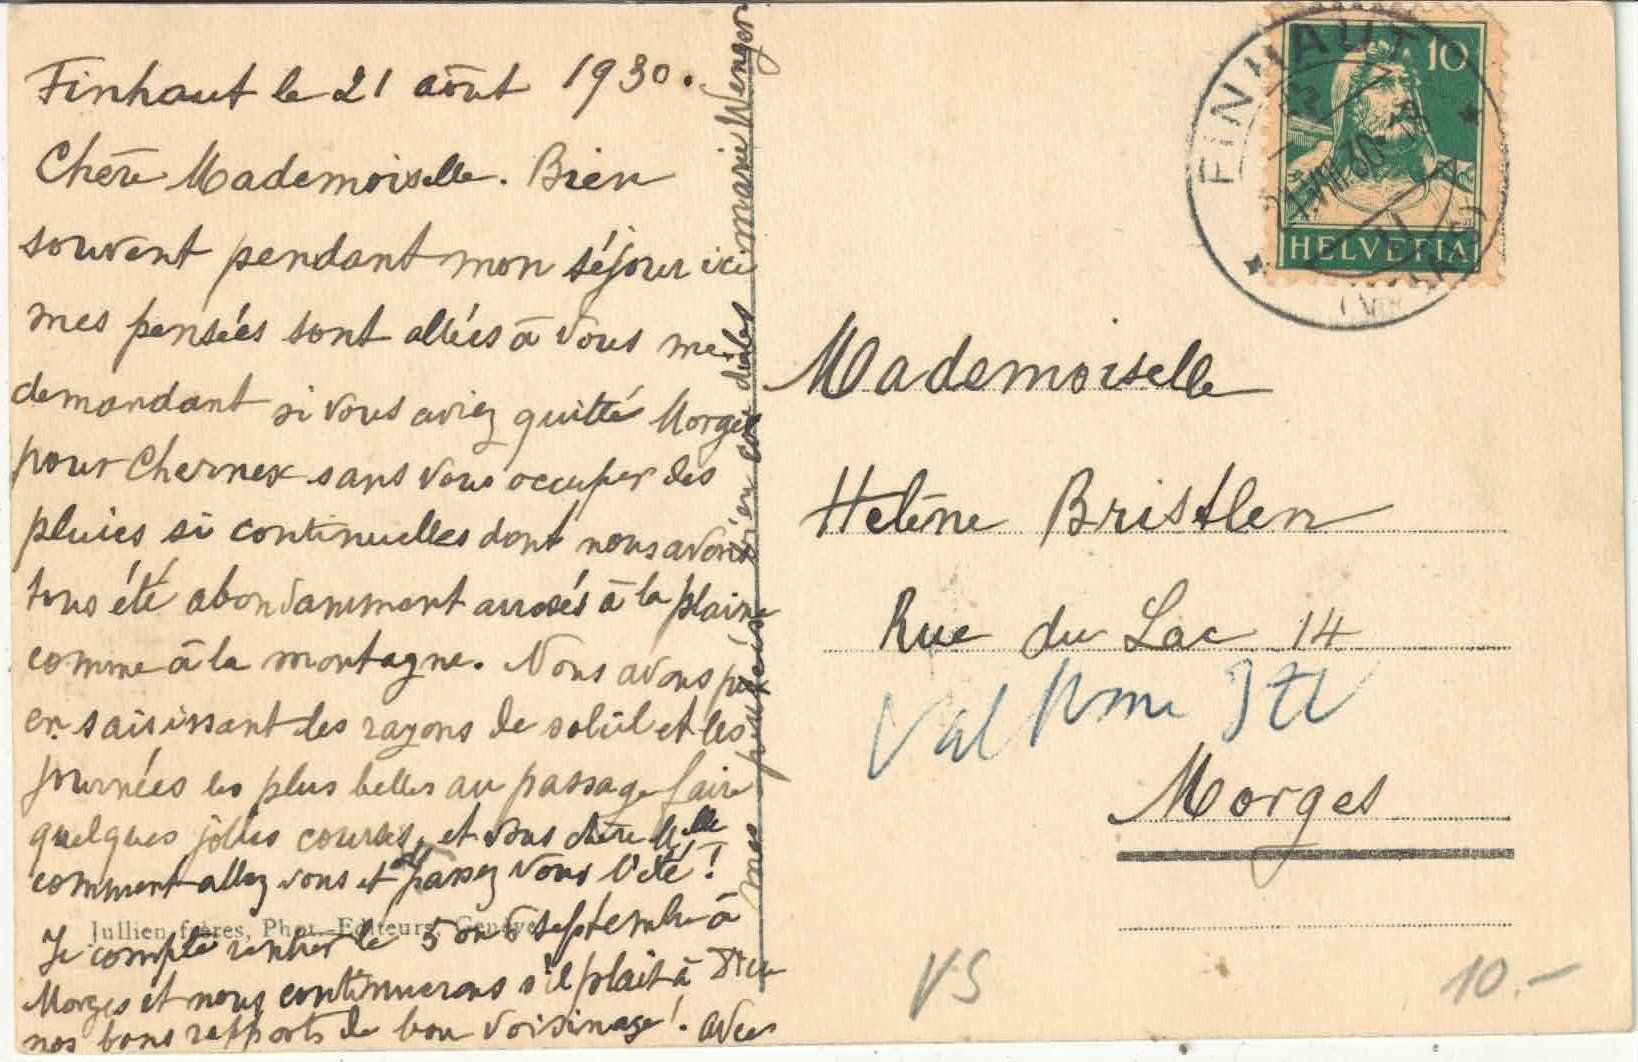 Finhaut le 21 août 1930.
Chère Mademoiselle. Bien
souvent pendant mon séjour ici
mes pensées sont allées à vous me
demandant si vous aviez quitté Morges
pour Chernex sans vous occuper des
pluies si continuelles dont nous avons
tous été abondamment arrosés à la plaine
comme à la montagne. Nous avons pu
en saisissant les rayons de soleil et les
journées les plus belles au passage faire
quelques jolies courses, et vous chère Mlle
comment allez vous et passez vous l'été!
Je compte rentrer le 5 ou 6 septembre à
Morges et nous continuerons s'il plait à Dieu
nos bons rapports de bon voisinage! avec
mes pensées bien cordiales Marie Wenger
Jullien frères, Phot.-Editeurs, Genève
FINHAUT
21.VIII.30
10
HELVETIA
Mademoiselle
Helène Bristlen
Rue du Lac 14
Val
Morges
VS
10.-